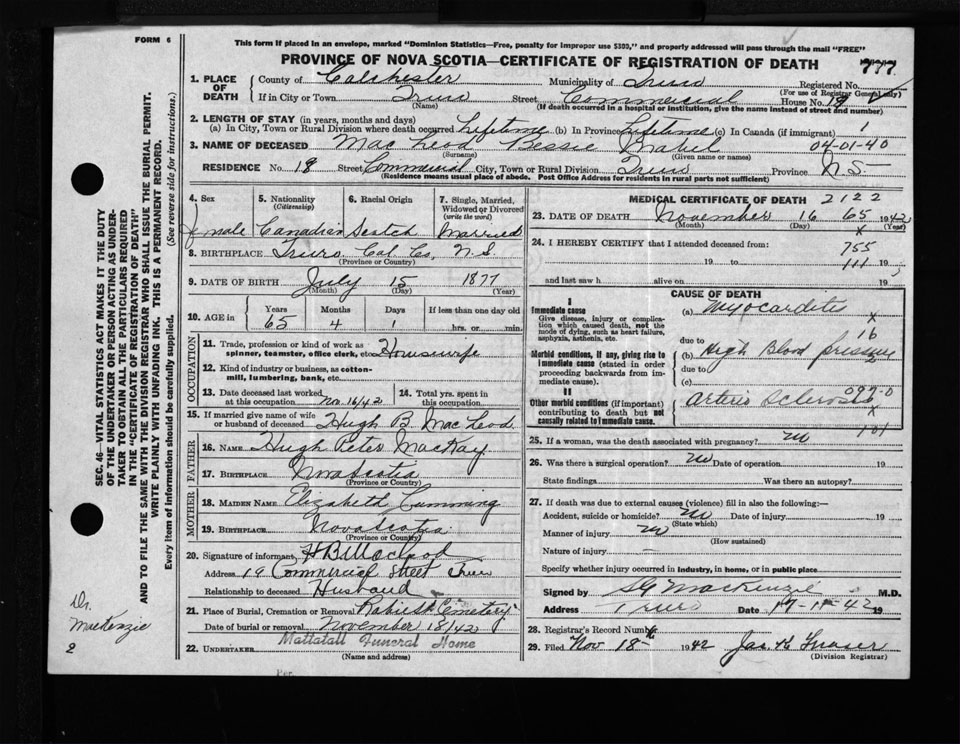 FORM 6
This form if placed in an envelope, marked "Dominion Statistics—Free, penalty for improper use $300," and properly addressed will pass through the mail "FREE"
PROVINCE OF NOVA SCOTIA—CERTIFICATE OF REGISTRATION OF DEATH 777
1. PLACE OF DEATH County of Colchester Municipality of Truro Registered No.
(For use of Registrar General only)
If in City or Town Truro Street Commercial House No. 19
(Name) (If death occurred in a hospital or institution, give the name instead of street and number)
2. LENGTH OF STAY (in years, months and days)
(a) In City, Town or Rural Division where death occurred Lifetime (b) In Province Lifetime (c) In Canada (if immigrant) 1
3. NAME OF DECEASED Mac Leod Bessie Mabel 04-01-40
(Surname) (Given name or names)
RESIDENCE No. 19 Street Commercial City, Town or Rural Division Truro Province N.S.
(Residence means usual place of abode. Post Office Address for residents in rural parts not sufficient)
4. Sex female
5. Nationality (Citizenship) Canadian
6. Racial Origin Scotch
7. Single, Married, Widowed or Divorced (write the word) Married
8. BIRTHPLACE Truro Col. Co, N.S.
(Province or Country)
9. DATE OF BIRTH July 15 1877
(Month) (Day) (Year)
10. AGE in Years 65 Months 4 Days 1 If less than one day old hrs. or min.
OCCUPATION
11. Trade, profession or kind of work as spinner, teamster, office clerk, etc. Housewife
12. Kind of industry or business, as cotton-mill, lumbering, bank, etc.
13. Date deceased last worked at this occupation Nov 16/42
14. Total yrs. spent in this occupation
15. If married give name of wife or husband of deceased Hugh B. Mac Leod
FATHER
16. NAME Hugh Peter MacKay
17. BIRTHPLACE Nova Scotia
(Province or Country)
MOTHER
18. MAIDEN NAME Elizabeth Cumming
19. BIRTHPLACE Nova Scotia
(Province or Country)
20. Signature of informant H B Macleod
Address 19 Commercial Street Truro
Relationship to deceased Husband
21. Place of Burial, Cremation or Removal Robie St. Cemetery
Date of burial or removal November 18/42
22. UNDERTAKER Mattatall Funeral Home
(Name and address)
Per.
MEDICAL CERTIFICATE OF DEATH 2122
23. DATE OF DEATH November 16 65 1942
(Month) (Day) (Year)
x
24. I HEREBY CERTIFY that I attended deceased from: 755
19 to 111 19
and last saw h alive on 19
CAUSE OF DEATH
I
Immediate cause
Give disease, injury or complication which caused death, not the mode of dying, such as heart failure, asphyxia, asthenia, etc.
(a) Myocarditis
x
due to 16
Morbid conditions, if any, giving rise to immediate cause (stated in order proceeding backwards from immediate cause).
(b) High Blood pressure
due to
(c)
II
Other morbid conditions (if important) contributing to death but not causally related to immediate cause.
Arterio Sclerosis 097-0
x
101
25. If a woman, was the death associated with pregnancy? no
26. Was there a surgical operation? no Date of operation 19
State findings Was there an autopsy?
27. If death was due to external causes (violence) fill in also the following:—
Accident, suicide or homicide? no Date of injury 19
(State which)
Manner of injury no
(How sustained)
Nature of injury —
Specify whether injury occurred in industry, in home, or in public place
Signed by SG MacKenzie M.D.
Address Truro Date 17-11-42 19
28. Registrar's Record Number
29. Filed Nov 18th 1942 Jas. K Fraser
(Division Registrar)
SEC. 46—VITAL STATISTICS ACT MAKES IT THE DUTY
OF THE UNDERTAKER OR PERSON ACTING AS UNDER-
TAKER TO OBTAIN ALL THE PARTICULARS REQUIRED
IN THE "CERTIFICATE OF REGISTRATION OF DEATH"
AND TO FILE THE SAME WITH THE DIVISION REGISTRAR WHO SHALL ISSUE THE BURIAL PERMIT.
WRITE PLAINLY WITH UNFADING INK. THIS IS A PERMANENT RECORD.
Every item of information should be carefully supplied. (See reverse side for instructions.)
Dr.
MacKenzie
2